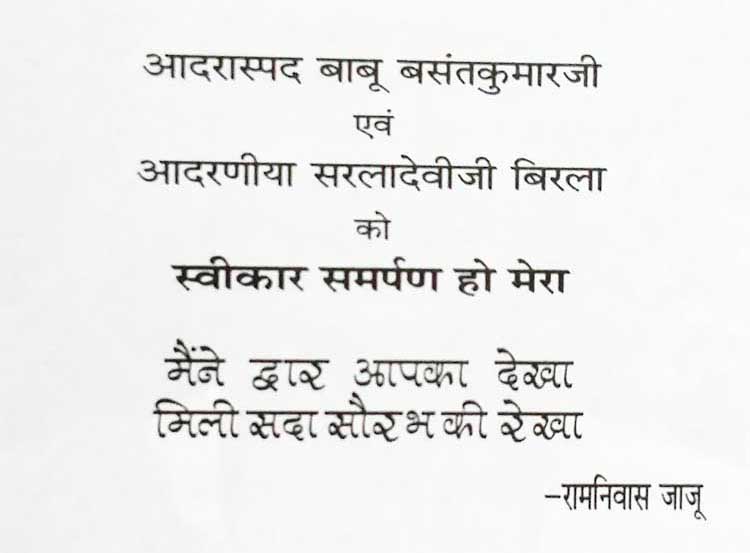 आदरास्पद बाबू बसंतकुमारजी
एवं
आदरणीया सरलादेवीजी बिरला
को
स्वीकार समर्पण हो मेरा
मैंने द्वार आपका देखा
मिली सदा सौरभ की रेखा
–रामनिवास जाजू